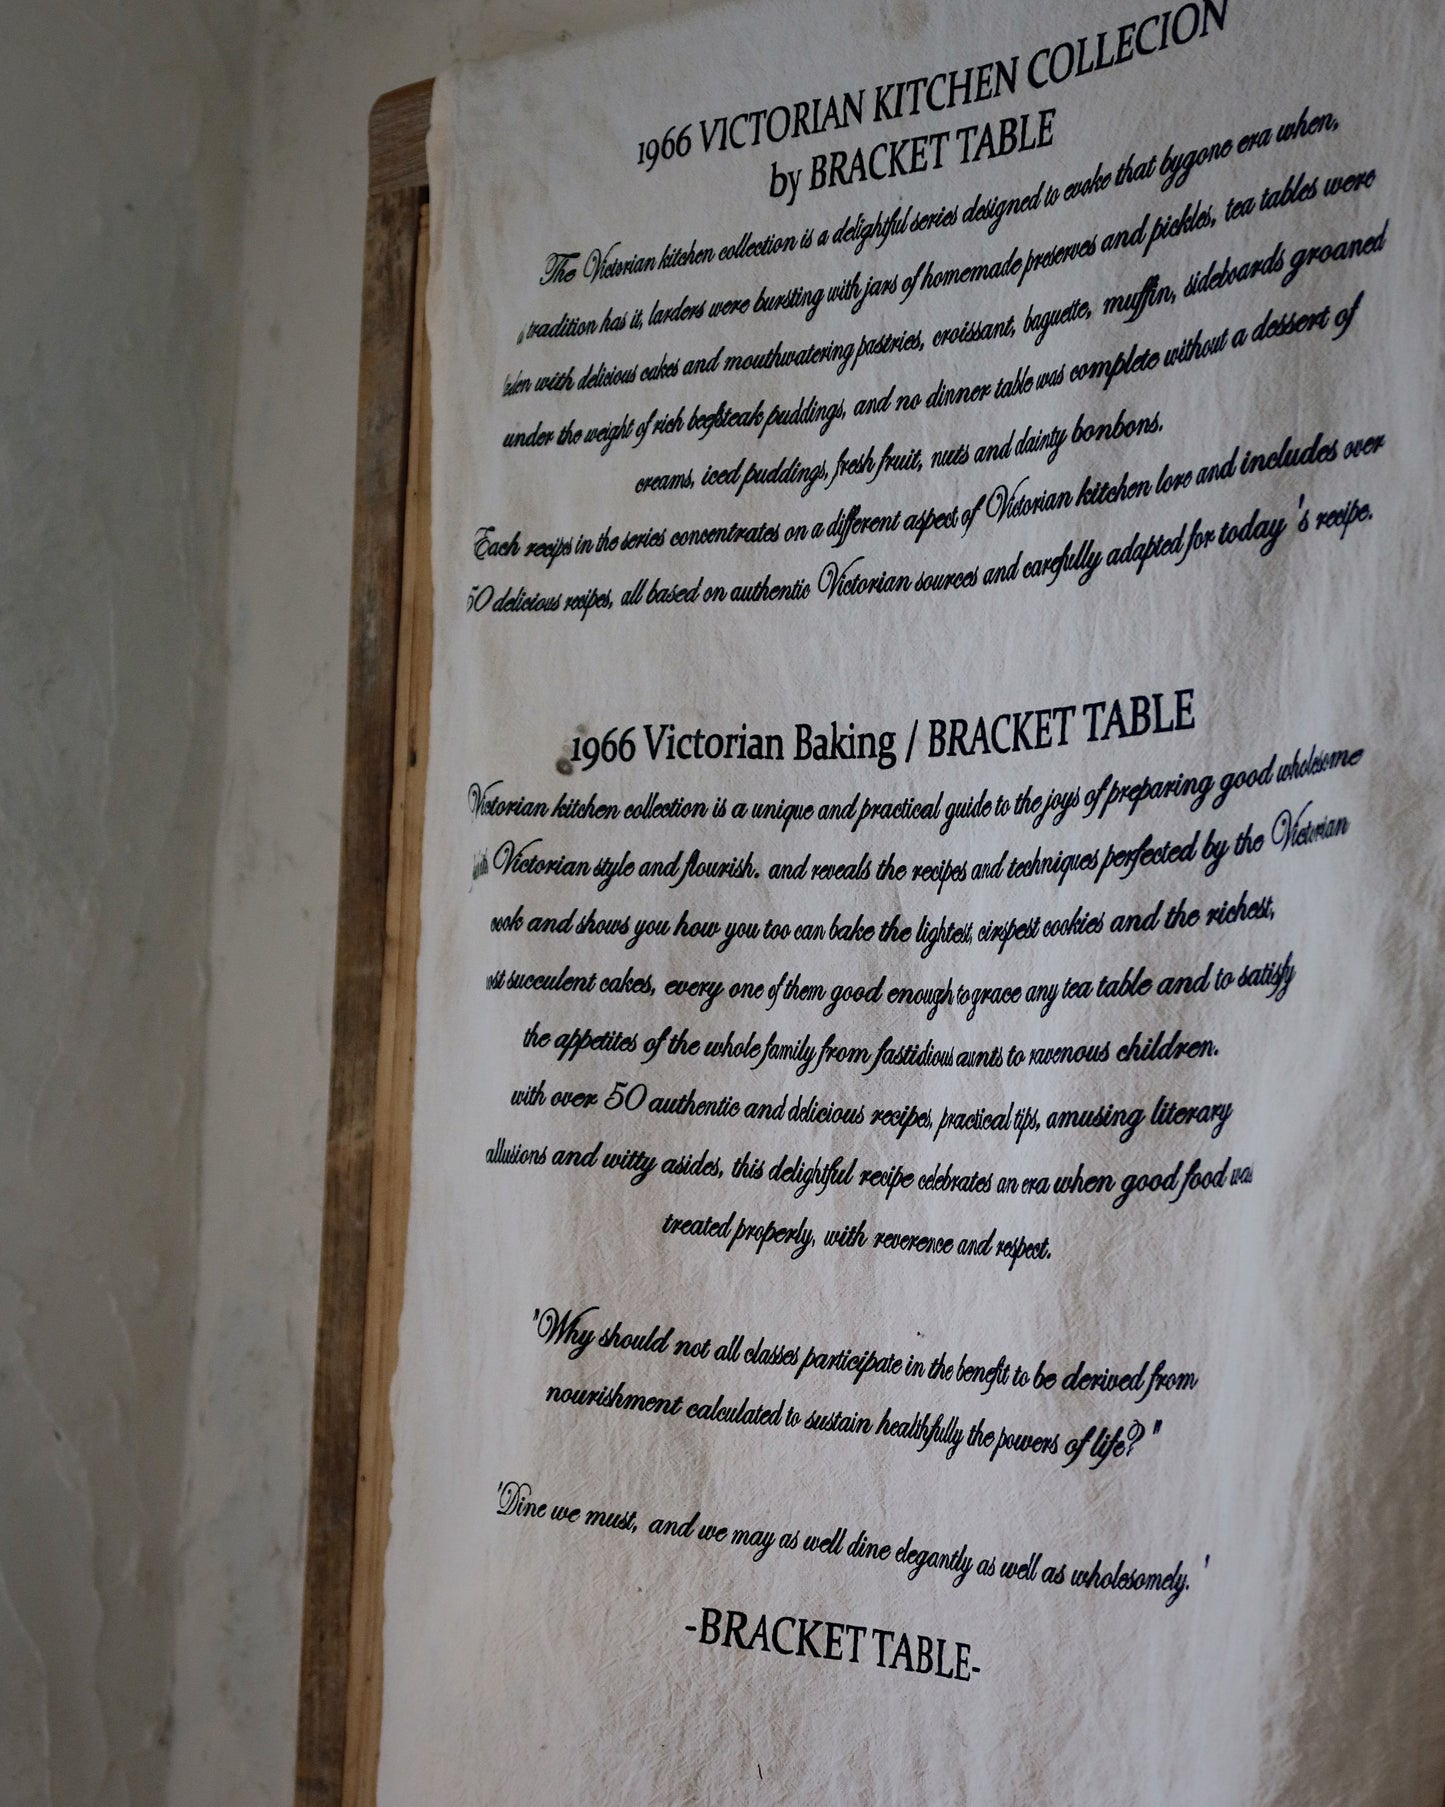 1966 VICTORIAN KITCHEN COLLECION
by BRACKET TABLE
The Victorian kitchen collection is a delightful series designed to evoke that bygone era when,
tradition has it, larders were bursting with jars of homemade preserves and pickles, tea tables were
with delicious cakes and mouthwatering pastries, croissant, baguette, muffin, sideboards groaned
under the weight of rich beefsteak puddings, and no dinner table was complete without a dessert of
creams, iced puddings, fresh fruit, nuts and dainty bonbons.
Each recipe in the series concentrates on a different aspect of Victorian kitchen lore and includes over
50 delicious recipes, all based on authentic Victorian sources and carefully adapted for today's recipe.
1966 Victorian Baking / BRACKET TABLE
Victorian kitchen collection is a unique and practical guide to the joys of preparing good wholesome
Victorian style and flourish. and reveals the recipes and techniques perfected by the Victorian
cook and shows you how you too can bake the lightest, cirspest cookies and the richest,
succulent cakes, every one of them good enough to grace any tea table and to satisfy
the appetites of the whole family from fastidious aunts to ravenous children.
with over 50 authentic and delicious recipes, practical tips, amusing literary
allusions and witty asides, this delightful recipe celebrates an era when good food was
treated properly, with reverence and respect.
"Why should not all classes participate in the benefit to be derived from
nourishment calculated to sustain healthfully the powers of life?"
'Dine we must, and we may as well dine elegantly as well as wholesomely.'
-BRACKET TABLE-